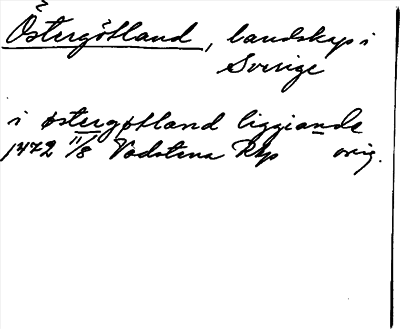 Östergötland, landskap i
Sverige
i østergøtland liggiande
1472 11/8 Vadstena Rkp orig.